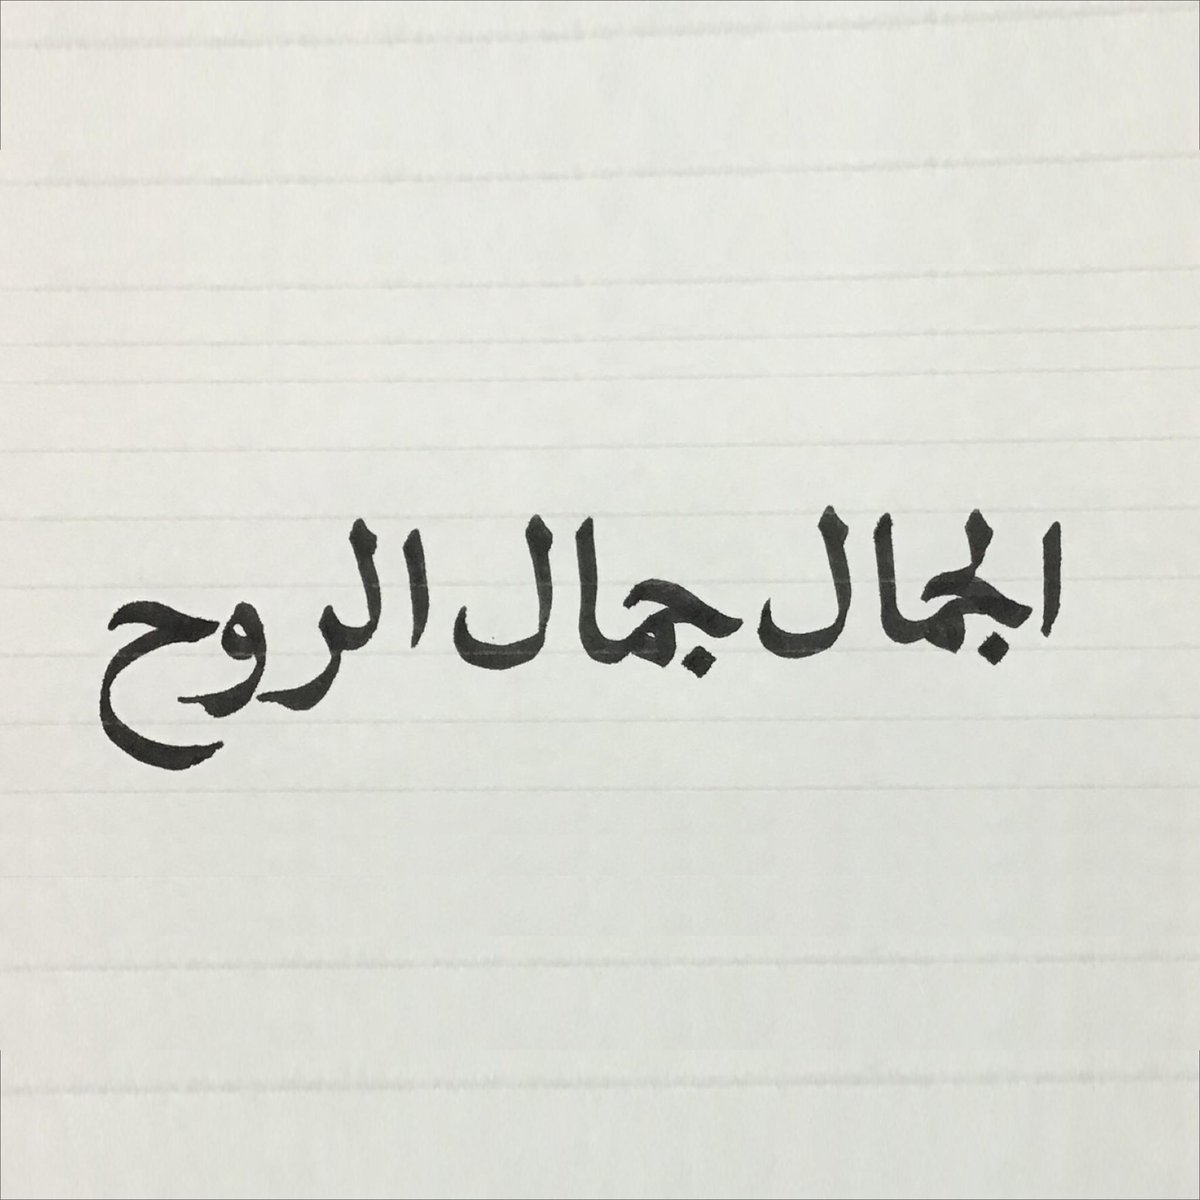 الجمال جمال الروح